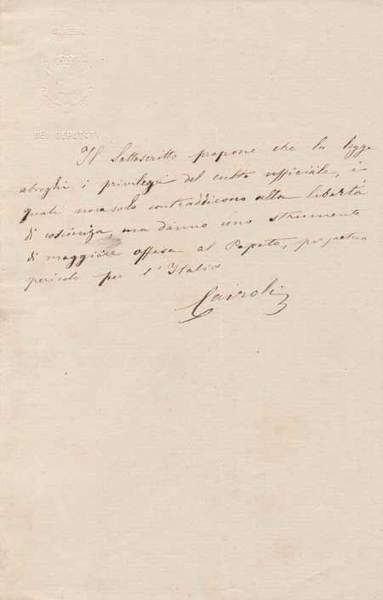 CAMERA
DEI DEPUTATI
Il Sottoscritto propone che la legge
abroghi i privilegi del culto officiale, i
quali non solo contraddicono alla libertà
di coscienza, ma danno uno strumento
di maggiore offesa al Papato, perpetuo
pericolo per l'Italia
Cairoli